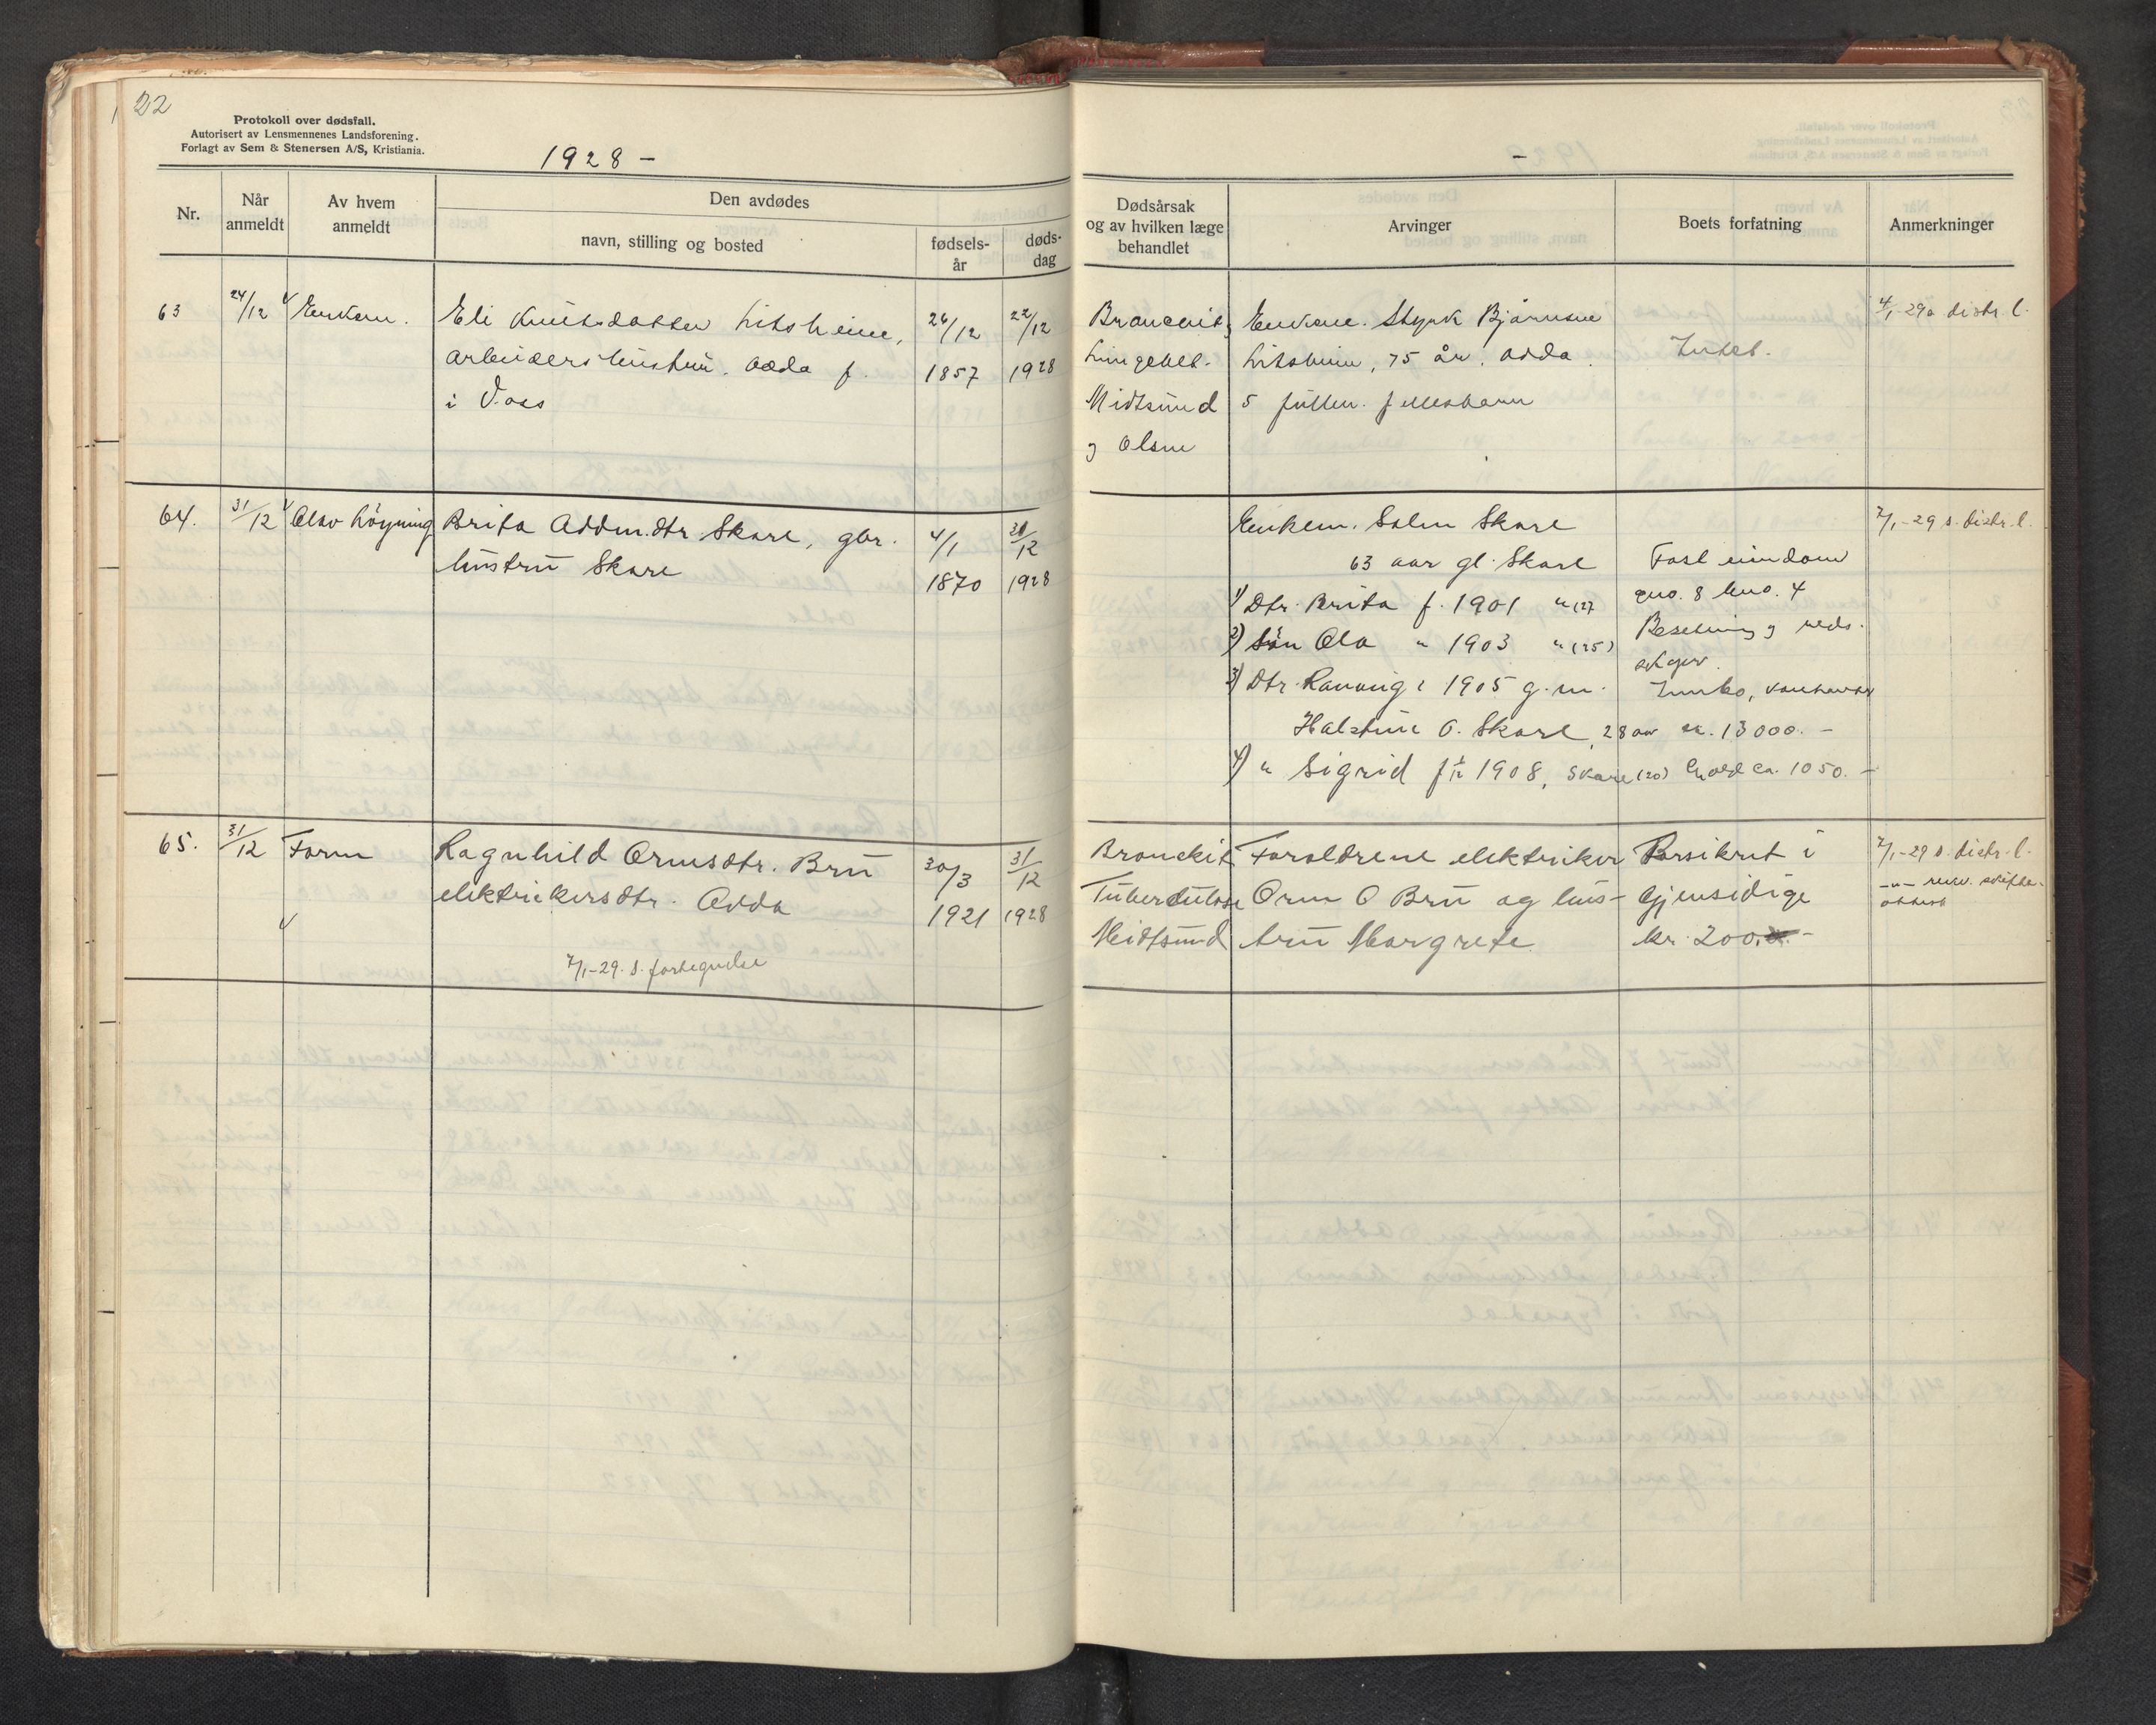 22
Protokoll over dødsfall.
Autorisert av Lensmennenes Landsforening.
Forlagt av Sem & Stenersen A/S, Kristiania.
1928 –
Nr.
Når anmeldt
Av hvem anmeldt
Den avdødes
navn, stilling og bosted
fødsels-
år
døds-
dag
Dødsårsak
og av hvilken læge
behandlet
Arvinger
Boets forfatning
Anmerkninger
63
24/12
Enkem.
Eli Knutsdotter Litsheim,
arbeiders hustru. Odda f.
i Voss
26/12
1857
22/12
1928
Broncit,
Lungebet.
Midtsund
og Olsen
Enkem. Styrk Bjørnsen
Litsheim, 75 år, Odda.
5 fullm. fellesbarn
Intet.
4/1-29 s. distr. l.
64.
31/12
Olav Løyning
Brita Oddm.dtr. Skare, gbr.
hustru Skare
4/1
1870
12
1928
Enkem. Salm Skare
63 aar gl. Skare
1) Dtr. Brita f. 1901 " (27
2) Søn Ola " 1903 " (25)
3) Dtr. Ranveig " 1905 g.m.
O. Skare, 28 aar
4) " Sigrid f 1908, Skare (20)
Fast eiendom
gno. 8 bno. 4
Besetning og reds-
skaper.
Innbo,
ca. 13000. –
Gjeld ca. 1050. –
7/1-29 s. distr. l.
65.
31/12
Farm
Ragnhild Ormsdtr. Bru
elektrikersdtr. Odda
7/1-29. s. fortegnelse
30/3
1921
31/12
1928
Bronckit
Tuberculose
Midtsund
Foreldrene elektriker
Orm O Bru og hus-
tru Margrete
Forsikret i
Gjensidige
kr. 200. –
7/1-29 s. distr. l.
-"- skifte-
attest